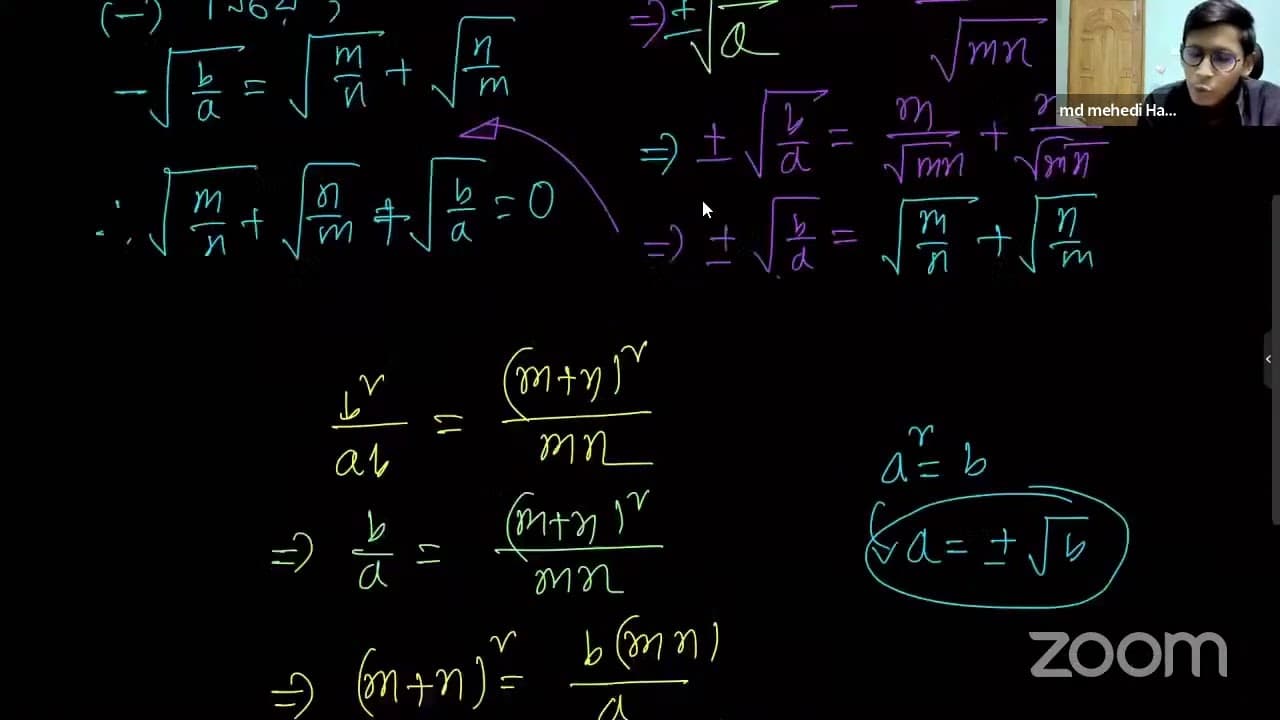 (-)
-√(b/a) = √(m/n) + √(n/m)
∴ √(m/n) + √(n/m) + √(b/a) = 0
⇒ ±√a =
√mn
⇒ ± √(b/a) = m/√mn + n/√mn
⇒ ± √(b/a) = √(m/n) + √(n/m)
md mehedi Ha...
b²/ab = (m+n)²/mn
⇒ b/a = (m+n)²/mn
⇒ (m+n)² = b(mn)/a
a² = b
a = ± √b
zoom